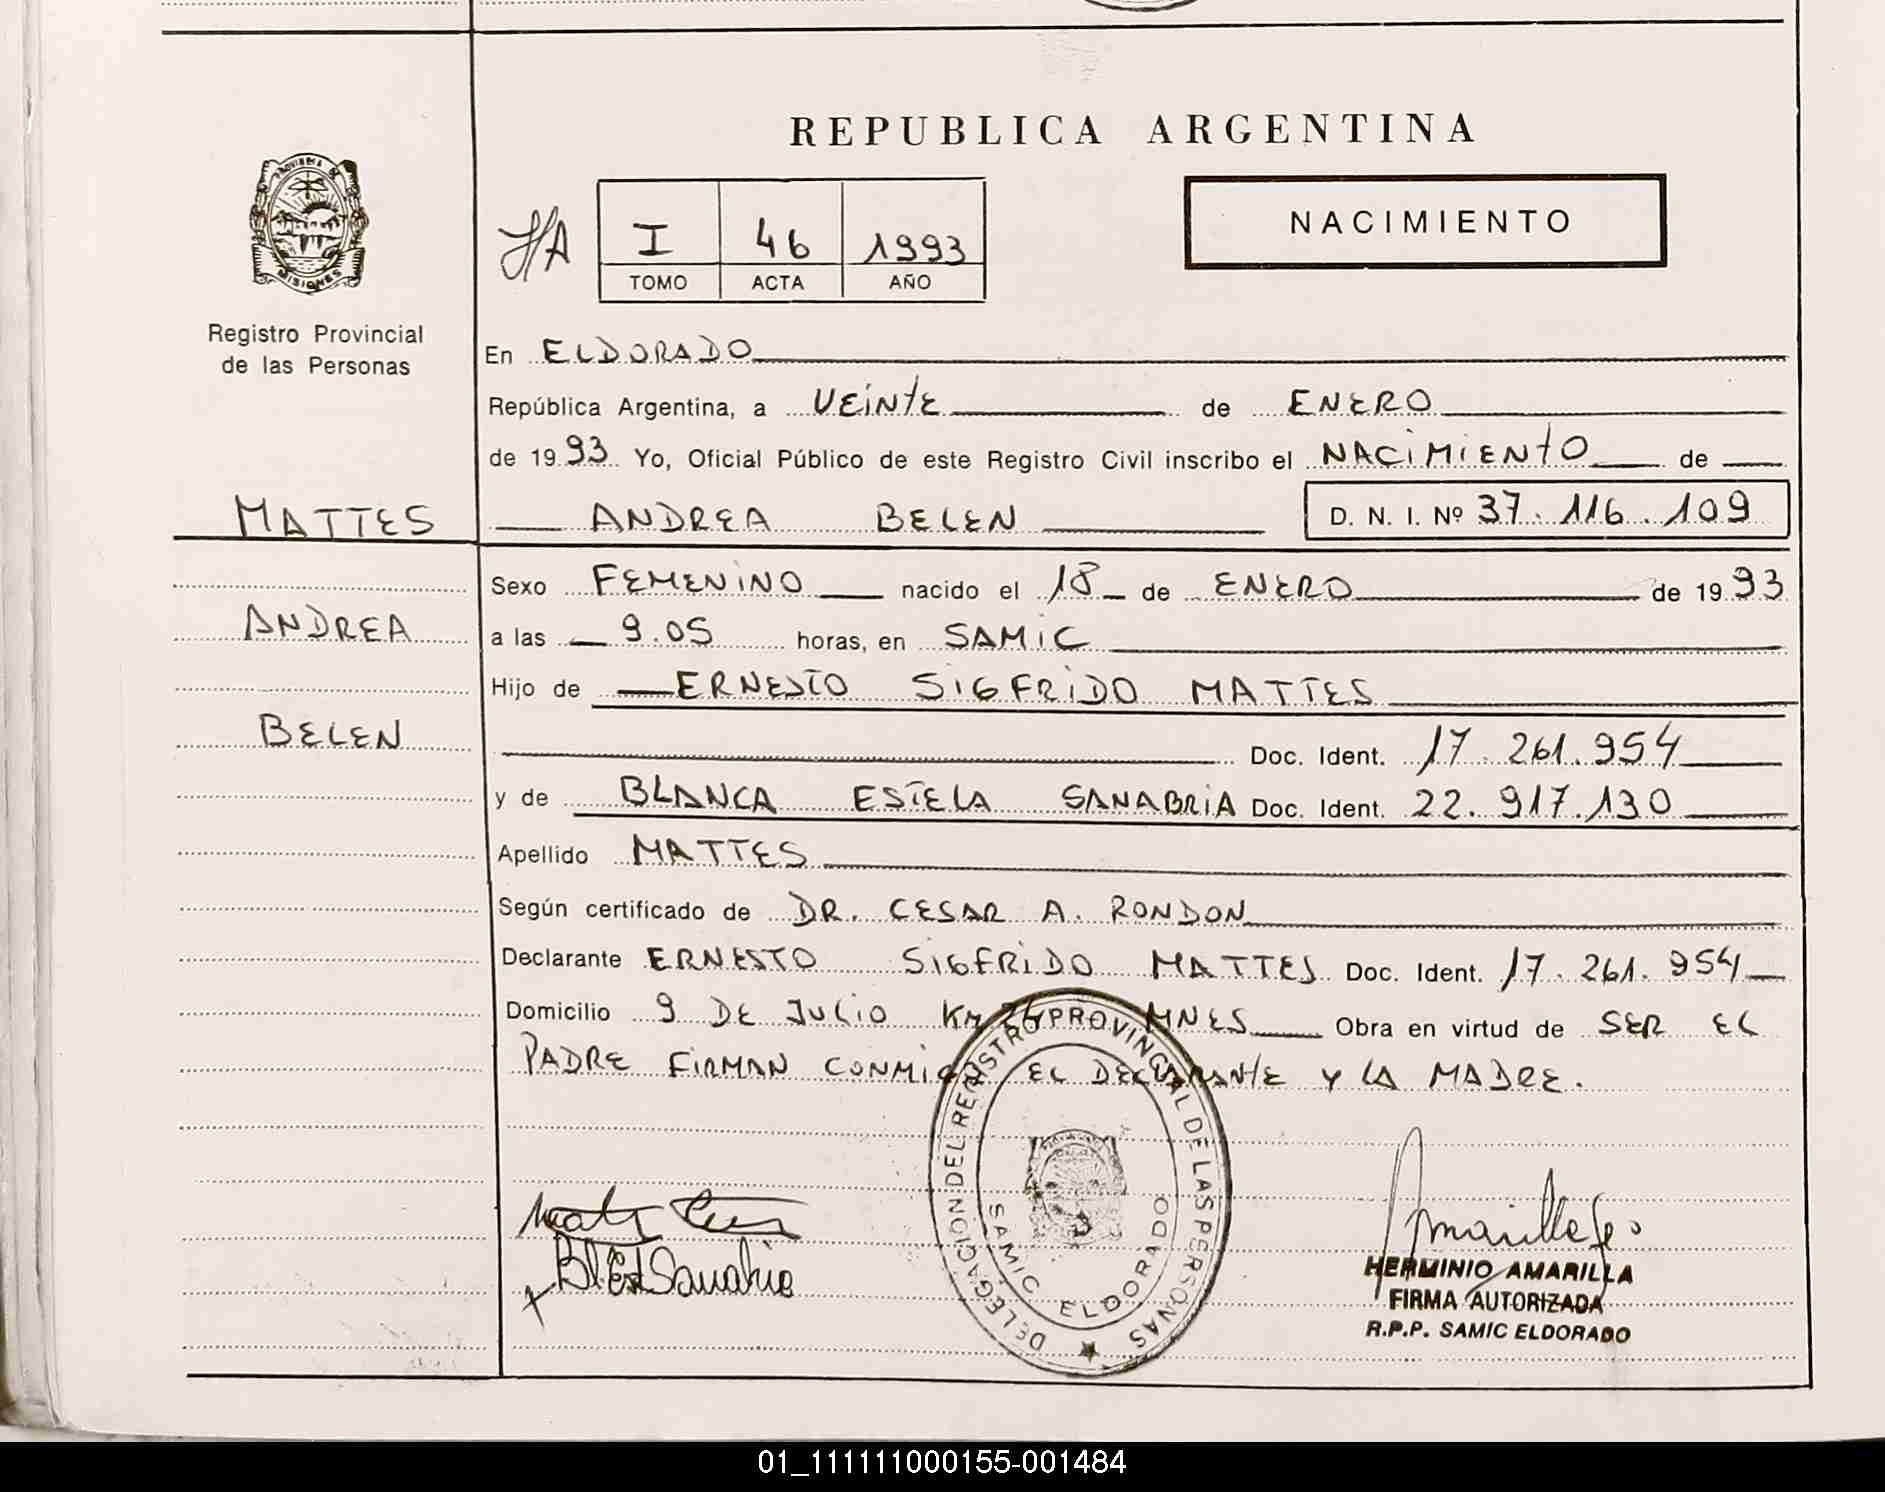 REPUBLICA ARGENTINA
PROVINCIA DE MISIONES
Registro Provincial
de las Personas
H/A I 46 1993
TOMO ACTA AÑO
NACIMIENTO
En ELDORADO
República Argentina, a VEINTE de ENERO
de 1993 Yo, Oficial Público de este Registro Civil inscribo el NACIMIENTO de
MATTES
ANDREA BELEN D. N. I. Nº 37.116.109
Sexo FEMENINO nacido el 18 de ENERO de 1993
ANDREA
a las 9.05 horas, en SAMIC
Hijo de ERNESTO SIGFRIDO MATTES
BELEN
Doc. Ident. 17.261.954
y de BLANCA ESTELA SANABRIA Doc. Ident. 22.917.130
Apellido MATTES
Según certificado de DR. CESAR A. RONDON
Declarante ERNESTO SIGFRIDO MATTES Doc. Ident. 17.261.954
Domicilio 9 DE JULIO Km MNES Obra en virtud de SER EL
PADRE FIRMAN CONMIGO EL DECLARANTE Y LA MADRE.
DELEGACION DEL REGISTRO PROVINCIAL DE LAS PERSONAS
SAMIC ELDORADO
HERMINIO AMARILLA
FIRMA AUTORIZADA
R.P.P. SAMIC ELDORADO
01_111111000155-001484